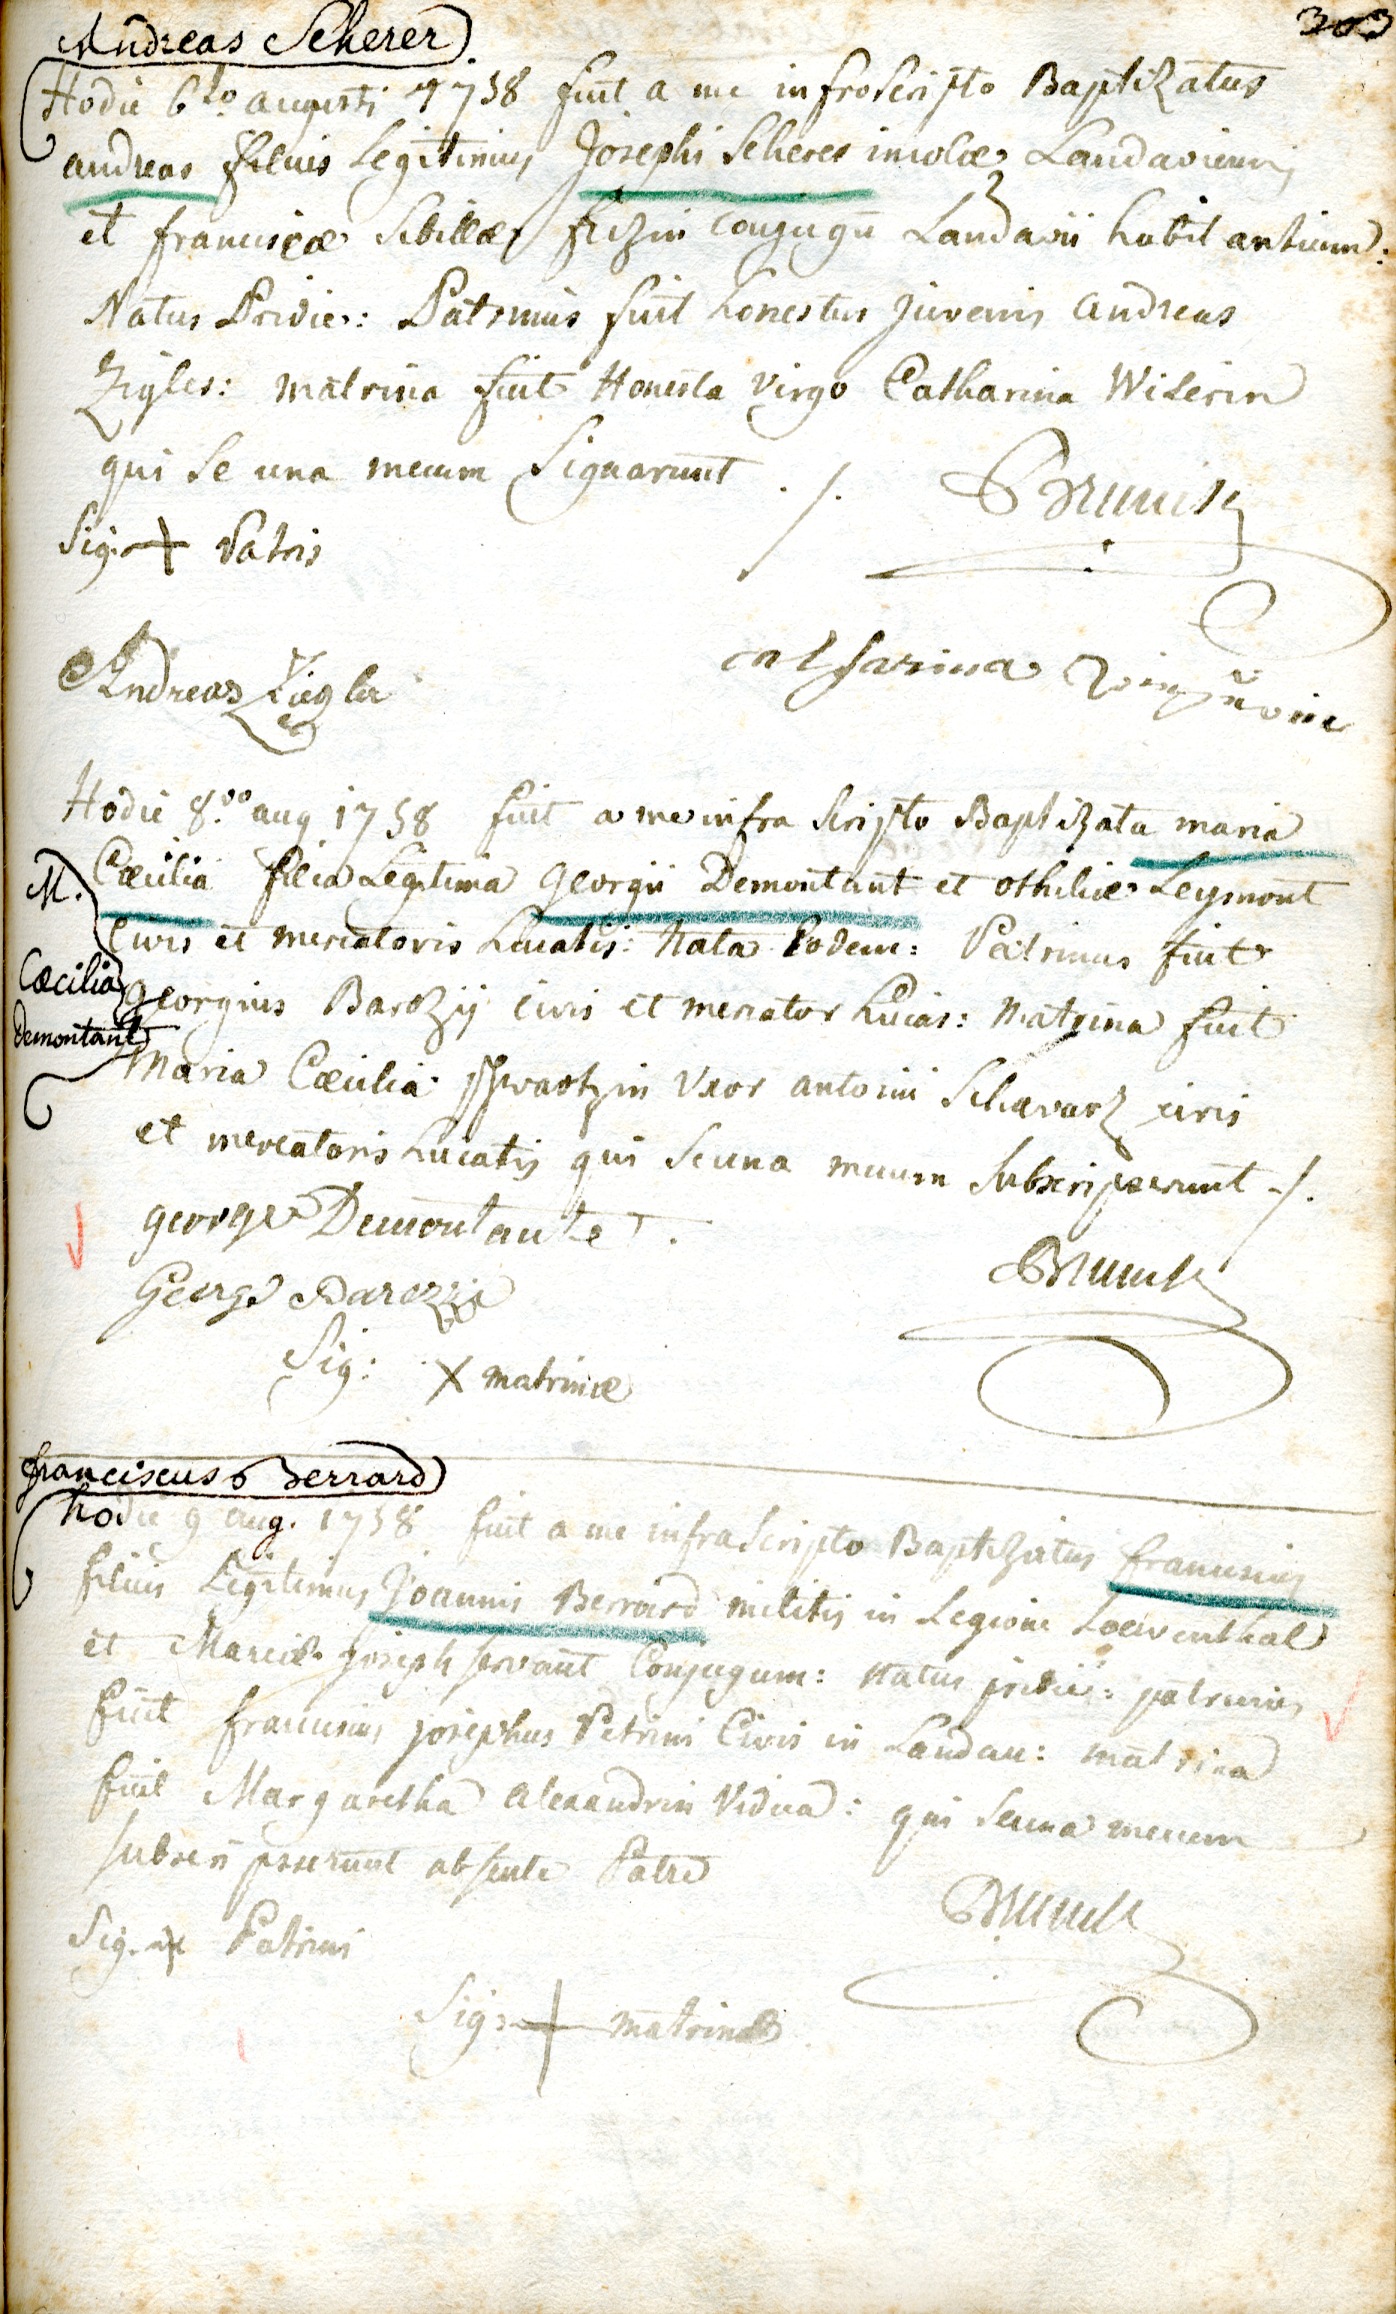 303
Andreas Scherer
Hodie 6to augusti 1758 fuit a me infrascripto Baptizatus
andreas filius Legitimus Josephi Scherer incolae Landaviensis
et franciscae Sibillae conjugum Landavii habitantium:
Natus Pridie: Patrinus fuit honestus juvenis andreas
Zigler: matrina fuit Honesta virgo Catharina
qui se una mecum Signarunt ./.
Sig: + Patris
Andreas Ziegler
catharina
Hodie 8vo aug 1758 fuit a me infra scripto Baptizata maria
Caecilia filia Legitima georgii Demontant et othiliae Leymont
M. Caecilia Demontant
Civis et mercatoris Lucatis: Nata Eodem: Patrinus fuit
georgius Barozy civis et mercator hucias: matrina fuit
Maria Caecilia Schwartzin Uxor antonii Schwarz civis
et mercatoris Lucatis qui se una mecum subscripserunt ./.
george Demontant
George Barozzi
Sig: X matrinae
franciscus Berrard
hodie 9 aug. 1758 fuit a me infrascripto Baptizatus franciscus
filius Legitimus Joannis Berrard militis in Legione Loewenthal
et Mariae joseph servant Conjugum: Natus pridie: patrinus
fuit franciscus josephus Petrini Civis in Landau: matrina
fuit Margaretha alexandrin Vidua: qui se una mecum
subscripserunt absente Patre
Sig. + Patrini
Sig: + matrinae